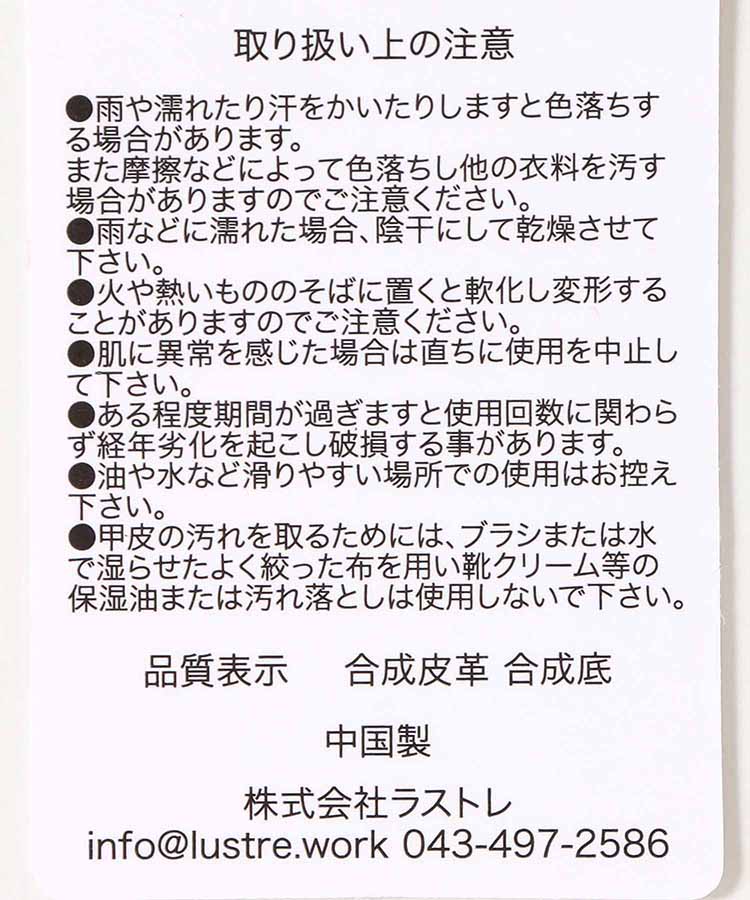 取り扱い上の注意
●雨や濡れたり汗をかいたりしますと色落ちす
る場合があります。
また摩擦などによって色落ちし他の衣料を汚す
場合がありますのでご注意ください。
●雨などに濡れた場合、陰干にして乾燥させて
下さい。
●火や熱いもののそばに置くと軟化し変形する
ことがありますのでご注意ください。
●肌に異常を感じた場合は直ちに使用を中止し
て下さい。
●ある程度期間が過ぎますと使用回数に関わら
ず経年劣化を起こし破損する事があります。
●油や水など滑りやすい場所での使用はお控え
下さい。
●甲皮の汚れを取るためには、ブラシまたは水
で湿らせたよく絞った布を用い靴クリーム等の
保湿油または汚れ落としは使用しないで下さい。
品質表示 合成皮革 合成底
中国製
株式会社ラストレ
info@lustre.work 043-497-2586